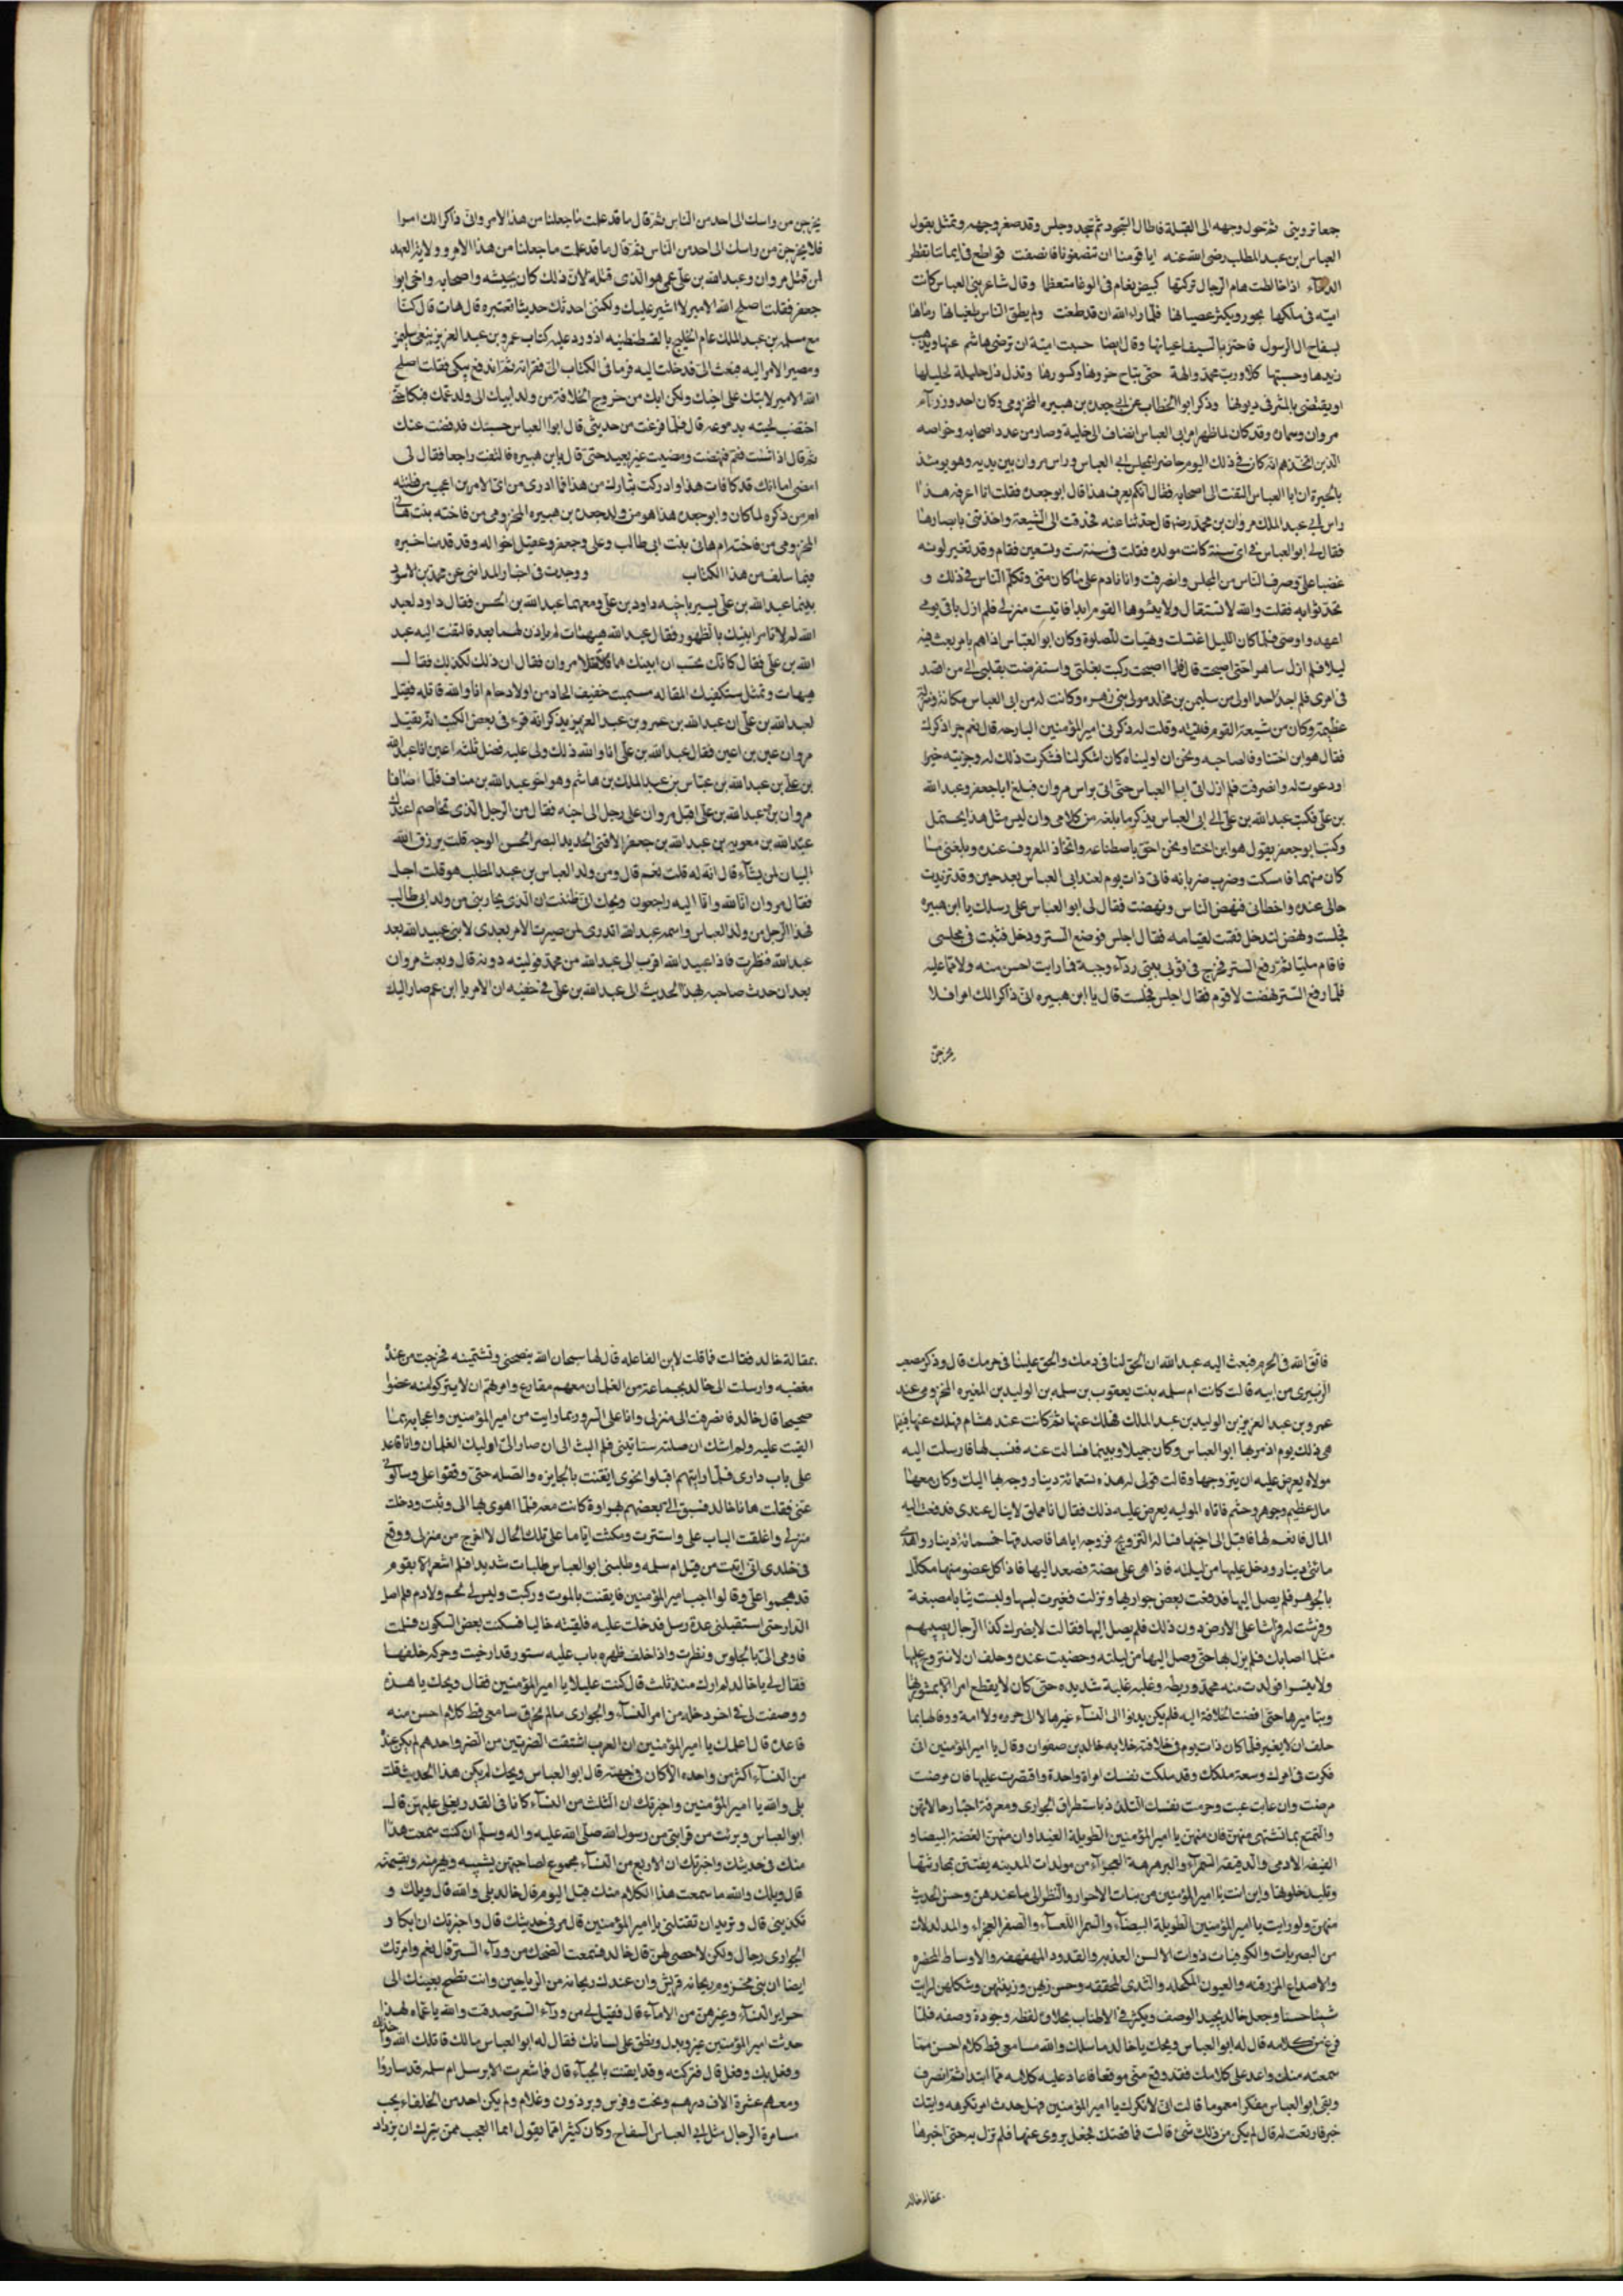 جعا ترويني ثم تحول وجهه الى القبلة فاطال السجود ثم تجد وجلس وقد صفر وجهه وتمثل بقول
العباس ابن عبد المطلب رضى الله عنه ابا قومنا ان تنصفونا فانصفت قواطع في ايماننا تقطر
الدماء اذا خالطت هام الرجال تركتها كبيض نعام في الوغا متعظما وقال شاعر بني العباس كانت
امية في ملكها تجور ويكثر عصيانها فلما راى الله ان قد طغت ولم يطق الناس طغيانها رماها
بسفاح ال الرسول فاحتز بالسيف اعيانها وقال ايضا حسبت امية ان ترضى هاشم عنها ويذهب
زيدها وحسينها كلا ورب محمد والهه حتى تباح حزونها وكسورها وتذل ذل حليلة لحليلها
او يقتضى بالمشرفي ديونها وذكر ابو الخطاب عن ابي جعده بن هبيره المخزومي وكان احد وزراء
مروان وسماره وقد كان لما ظهر امر ابى العباس انضاف الى خليه وصار من عدد اصحابه وخواصه
الذين اتخذهم انه كان في ذلك اليوم حاضرا مجلس ابي العباس وراس مروان بين يديه وهو يومئذ
بالحيرة ان ابا العباس التفت الى اصحابه فقال ايكم يعرف هذا قال ابو جعده فقلت انا اعرفه هذا
راس ابي عبد الملك مروان بن محمد رضه قال حدثنا عنه فحدقت الى الشيعة واخذتني بابصارها
فقال لي ابو العباس في اى سنة كانت مولده فقلت في سنة ست وتسعين فقام وقد تغير لونه
غضبا علي وصرف الناس من المجلس وانصرفت وانا نادم على ما كان منى وتكلم الناس في ذلك و
تحدثوا به فقلت والله لا تستقال ولا ينسوها القوم ابدا فاتيت منزلي فلم ازل باقي يومي
اعهد واوصى فلما كان الليل اغتسلت وتهيات للصلوة وكان ابو العباس اذا هم بامر بعث فيه
ليلا فلم ازل ساهرا حتى اصبحت قال فلما اصبحت ركبت بغلتي واستعرضت بقلبي الي من اقصد
في امرى فلم اجد احدا اولى من سليمن بن مخلد مولى بني زهره وكانت له من ابى العباس مكانة ومنزلة
عظيمة وكان من شيعة القوم فاتيته وقلت له ذكرني امير المؤمنين البارحه قال نعم جرا ذكرك
فقال هو ابن اختنا وفا لصاحبه ونحن ان اوليناه كان اشكر لنا فشكرت ذلك له وجزيته خيرا
ودعوت له وانصرفت فلم ازل اتى ابا العباس حتى اتى براس مروان فبلغ ابا جعفر وعبد الله
بن علي فكتب عبد الله بن علي الى ابى العباس يذكر ما بلغه من كلامي وان ليس مثل هذا يحتمل
وكتب ابو جعفر يقول هو ابن اختنا ونحن احق باصطناعه واتخاذ المعروف عنده وبلغني ما
كان منهما فامسكت وضرب ضربانه فاتى ذات يوم لعند ابى العباس بعد حين وقد تزيدت
حالى عنده واخطانى فنهض الناس ونهضت فقال لى ابو العباس على رسلك يا ابن هبيره
فجلست ونهض ليدخل فقمت لقيامه فقال اجلس فوضع الستر ودخل فثبت في مجلسى
فاقام مليا ثم رفع الستر فخرج فى ثوبى بعنى رداء وجبة فما رايت احسن منه ولا مما عليه
فلما رفع الستر نهضت لاقوم فقال اجلس فجلست قال يا ابن هبيره انى ذاكر الك امرا فلا
يخرجن
يخرجن من راسك الى احد من الناس ثم قال ما قد علمت ما جعلنا من هذا الامر وانى ذاكر الك امرا
فلا يخرجن من راسك الى احد من الناس ثم قال ما قد علمت ما جعلنا من هذا الامر وولاية العهد
لمن قتل مروان وعبد الله بن علي عمي هو الذى قتله لان ذلك كان بجيشه واصحابه واخى ابو
جعفر فقلت اصلح الله الامير لا اشير عليك ولكنى احدثك حديثا تعتبره قال هات قال كنا
مع مسلمة بن عبد الملك عام الخليج بالقسطنطينيه اذ ورد عليه كتاب عمر وبن عبد العزيز ينعى سليمن
ومصير الامر اليه فبعث الى فدخلت اليه فرما في الكتاب الى فقراته ثم اندفع يبكى فقلت اصلح
الله الامير لا تبك على اخيك ولكن ابك من خروج الخلافة من ولد ابيك الى ولد عمك فبكا حتى
اختضب لحيته بدموعه قال فلما فرغت من حديثى قال ابو العباس حسبك قد فهمت عنك
ثم قال اذا شئت فقم فنهضت ومضيت غير بعيد حتى قال يا بن هبيره فالتفت راجعا فقال لى
امضى اما انك قد كافات هذا وادركت بثارك من هذا فما ادرى من اى الامرين اعجب من فطنته
امر من ذكره لما كان وابو جعده هذا هو من ولد جعده بن هبيره المخزومى من فاخته بنت هانى
المخزومى من فاخته ام هانى بنت ابى طالب وعلى وجعفر وعقيل اخواله وقد قدمنا خبره
فيما سلف من هذا الكتاب ووجدت فى اخبار المدايني عن محمد بن الاسود
بينما عبد الله بن على يسير باخيه داود بن على ومعهما عبد الله بن الحسن فقال داود لعبد
الله لم لا تامر ابنيك بالظهور فقال عبد الله هيهات لم ياذن لهما بعد فالتفت اليه عبد
الله بن علي فقال كانك تحسب ان ابنيك هما قاتلا مروان فقال ان ذلك لكذلك فقال
هيهات وتمثل ستكفيك المقالة مستميت خفيف الحاد من اولاد حام انا والله قاتله فقيل
لعبد الله بن على ان عبد الله بن عمرو بن عبد العزيز يذكر انه قرء فى بعض الكتب انه يقتل
مروان عين بن اعين فقال عبد الله بن على انا والله ذلك ولى عليه فضل ثلثه اعين انا عبد الله
بن على بن عبد الله بن عباس بن عبد الملك بن هاشم وهو اخو عبد الله بن مناف فلما اضافا
مروان بن عبد الله بن على اقبل مروان على رجل الى جنبه فقال من الرجل الذى تخاصم اعنك
عبد الله بن معويه بن عبد الله بن جعفر الاقنى الحديد البصر الحسن الوجه قلت يرزق الله
البيان لمن يشاء قال انه له قلت نعم قال ومن ولد العباس بن عبد المطلب هو قلت اجل
فقال مروان انا لله وانا اليه راجعون ويحك انى ظننت ان الذى يحاربنى من ولد ابى طالب
فهذا الرجل من ولد العباس واسمه عبد الله اتدرى لمن صيرت الامر بعدى لابنى عبيد الله بعد
عبد الله فنظرت فاذا عبيد الله اقرب الى عبد الله من محمد فوليته دونه قال وبعث مروان
بعد ان حدث صاحبه بهذا الحديث الى عبد الله بن على في خفيه ان الامر يا ابن عم صار اليك
فاتق الله فى الحرم فبعث اليه عبد الله ان الحق لنا فى دمك والحق علينا فى حرمك قال وذكر مصعب
الزبيرى من ابيه قالت كانت ام سلمه بنت يعقوب بن سلمه بن الوليد بن المغيره المخزومى عند
عمرو بن عبد العزيز بن الوليد بن عبد الملك فهلك عنها ثم كانت عند هشام فهلك عنها فبينا
هى ذلك يوم اذ مر بها ابو العباس وكان جميلا وسيما فسالت عنه فنسب لها فارسلت اليه
مولاه يعرض عليه ان يتزوجها وقالت قولى له هذه سبعمائة دينار وجه بها اليك وكان معها
مال عظيم وجوهر وحشم فاتاه المولية يعرض عليه ذلك فقال انا مملق لا ينال عندى فدفعت اليه
المال فانعم لها فاقبل الى اخيها فساله التزويج فزوجه اياها فاصدقها خمسمائة دينار واهدى
مائتى دينار ودخل عليها من ليلته فاذا هى على منصة فصعد اليها فاذا كل عضو منها مكلل
بالجوهر فلم يصل اليها فدعت بعض جواريها ونزلت فغيرت لبسها ولبست ثيابا مصبغة
وفرشت له فراشا على الارض دون ذلك فلم يصل اليها فقالت لا يضرك كذا الرجال يصيبهم
مثل ما اصابك فلم يزل بها حتى وصل اليها من ليلته وحضيت عنده وحلف ان لا يتزوج عليها
ولا يتسرا فولدت منه محمد وريطه وغلبه غلبة شديده حتى كان لا يقطع امرا الا بمشورتها
وبتاميرها حتى افضت الخلافة اليه فلم يكن يدنوا الى النساء غيرها لا الى حره ولا امة ووفا لها بما
حلف ان لا يغير فلما كان ذات يوم فى خلافته خلا به خالد بن صفوان وقال يا امير المؤمنين انى
فكرت فى امرك وسعة ملكك وقد ملكت نفسك امراة واحدة واقتصرت عليها فان مرضت
مرضت وان غابت غبت وحرمت نفسك التلذذ باستطراق الجوارى ومعرفة اخبار حالاتهن
والتمتع بما تشتهى منهن فان منهن يا امير المؤمنين الطويلة الغيدا وان منهن الغضة البيضا و
العتيقه الادمى والدقيقه السمراء والبربريه العجزاء من مولدات المدينه يفتتن بمحادثتها
وتلذ بخلوتها واين انت يا امير المؤمنين من بنات الاحرار والنظر الى ما عندهن وحسن الحديث
منهن ولو رايت يا امير المؤمنين الطويلة البيضاء والسمرا اللعساء والصفر العجزاء والمدلدلات
من البصريات والكوفيات ذوات الالسن العذبه والقدود المهفهفه والاوساط المخصره
والاصداع المزرفنه والعيون المكحله والثدى المحققه وحسن زيهن وزينتهن وشكلهن لرايت
شيئا حسنا وجعل خالد يجيد الوصف ويكثر في الاطناب بحلاوة لفظه وجودة وصفه فلما
فرغ من كلامه قال له ابو العباس ويحك يا خالد ما سلك والله مسامعى قط كلام احسن مما
سمعته منك واعد على كلامك فقد وقع منى موقعا فاعاد عليه كلامه مما ابتدا ثم انصرف
وبقى ابو العباس مفكرا مهموما قالت انى لا نكرك يا امير المؤمنين فهل حدث امر تكرهه واتاك
خبر فارتعت له قال لم يكن من ذلك شئ قالت فما قصتك فجعل يروى عنها فلم تزل به حتى اخبرها
بمقالة خالد
بمقالة خالد فقالت فما قلت لابن الفاعله قال لها سبحان الله ينصحنى وتشتمينه فخرجت من عنده
مغضبه وارسلت الى خالد بجماعة من الغلمان معهم مقارع وامرتهم ان لا يتركوا منه عضوا
صحيحا قال خالد فانصرفت الى منزلى وانا على السرور بما رايت من امير المؤمنين واعجابه بما
القيت عليه ولم اشك ان صلته ستاتينى فلم البث الى ان صار الى اوليك الغلمان وانا قاعد
على باب دارى فلما رايتهم اقبلوا نحوى ايقنت بالجايزه والصله حتى وقفوا على وسالوا
عنى فقلت ها انا خالد فسبق الي بعضهم بهراوة كانت معه فلما اهوى بها الى وثبت ودخلت
منزلى واغلقت الباب على واستترت ومكثت اياما على تلك الحال لا اخرج من منزلى ووقع
فى خلدى انى اتيت من قبل ام سلمه وطلبنى ابو العباس طلبات شديدا فلم اشعر الا بقوم
قد هجموا على وقالوا اجب امير المؤمنين فايقنت بالموت وركبت وليس لى لحم ولا دم فلم اصل
الدار حتى استقبلنى عدة رسل فدخلت عليه فلقيته خاليا فسكنت بعض السكون فسلمت
فاومى الى بالجلوس ونظرت واذا خلف ظهره باب عليه ستور قد ارخيت وحركه خلفها
فقال لى يا خالد لم ارك منذ ثلث قال كنت عليلا يا امير المؤمنين فقال ويحك يا هذا
ووصفت لى فى اخر دخله من امر النساء والجوارى ما لم يخرق مسامعى قط كلام احسن منه
فاعده قال اعلمك يا امير المؤمنين ان العرب اشتقت الضرتين من الضر واحدهم لم يكن عنده
من النساء اكثر من واحده الا كان فى جهنم قال ابو العباس ويحك لم يكن هذا الحديث قلت
بلى والله يا امير المؤمنين واخبرتك ان الثلث من النساء كانا فى القدر يغلى عليهن قال
ابو العباس وبرئت من قرابتى من رسول الله صلى الله عليه واله وسلم ان كنت سمعت هذا
منك فى حديثك واخبرتك ان الاربع من النساء مجموع لصاحبهن يشيبه ويهرمنه ويسقمنه
قال ويلك والله ما سمعت هذا الكلام منك قبل اليوم قال خالد بلى والله قال ويلك و
تكذبنى قال وتريد ان تقتلنى يا امير المؤمنين قال مر فى حديثك قال واخبرتك ان ابكار
الجوارى رجال ولكن لا خصى لهن قال خالد فسمعت الضحك من وراء الستر قال نعم واخبرتك
ايضا ان بنى مخزوم ريحانه قريش وان عندك ريحانه من الرياحين وانت تطمح بعينك الى
حراير النساء وغيرهن من الاماء قال فقيل لى من وراء الستر صدقت والله يا عماه بهذا
حدثت امير المؤمنين غير وبدل ونطق على لسانك فقال له ابو العباس مالك قاتلك الله واخزاك
وفعل بك وفعل قال فتركته وقد ايقنت بالحياء قال فما شعرت الا برسل ام سلمه قد ساروا
ومعهم عشرة الاف درهم وتخت وفرس وبرذون وغلام ولم يكن احد من الخلفاء يحب
مسامرة الرجال مثل ابى العباس السفاح وكان كثيرا ما يقول انما العجب ممن يترك ان يزداد